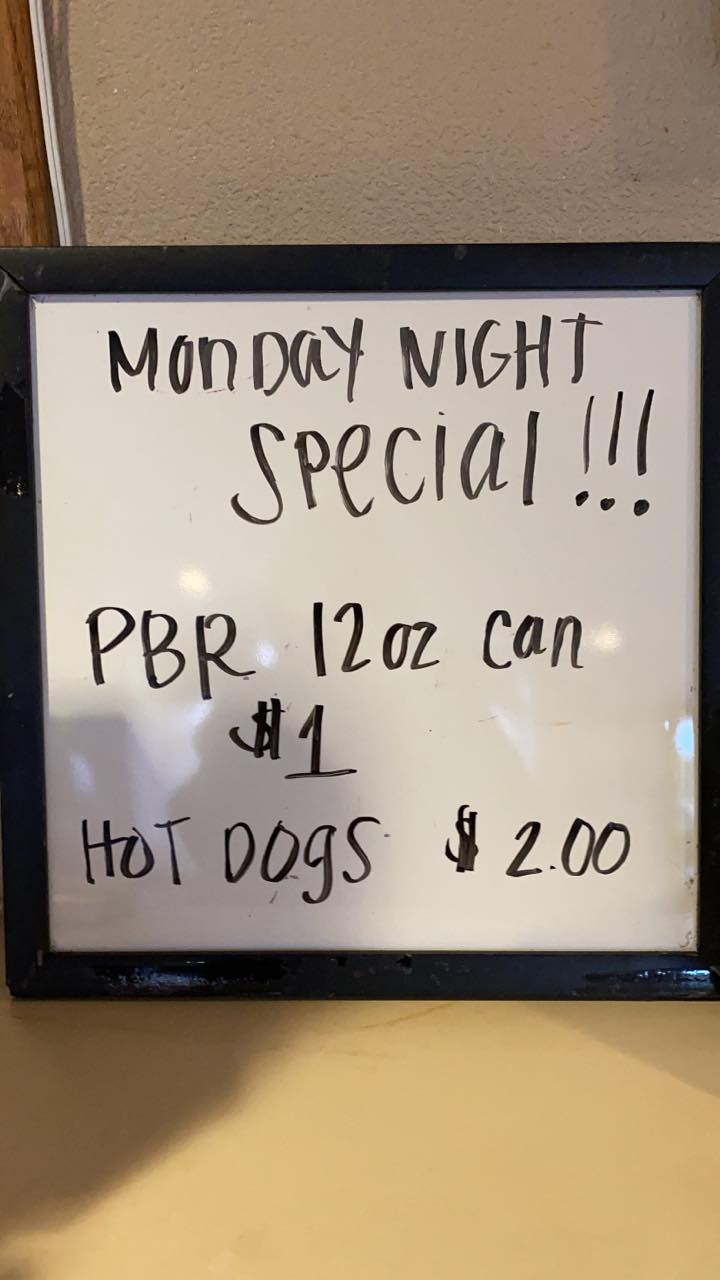 MonDay NIGHT
Special!!!
PBR 12oz can
$1
HOT DOgS $2.00